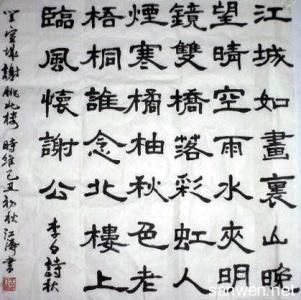 江城如畫裏山晚
望晴空雨水夾明
鏡雙橋落彩虹人
煙寒橘柚秋色老
梧桐誰念北樓上
臨風懷謝公 李白詩秋
登宣城謝朓北樓 時維己丑初秋 江濤書
sanwen.net